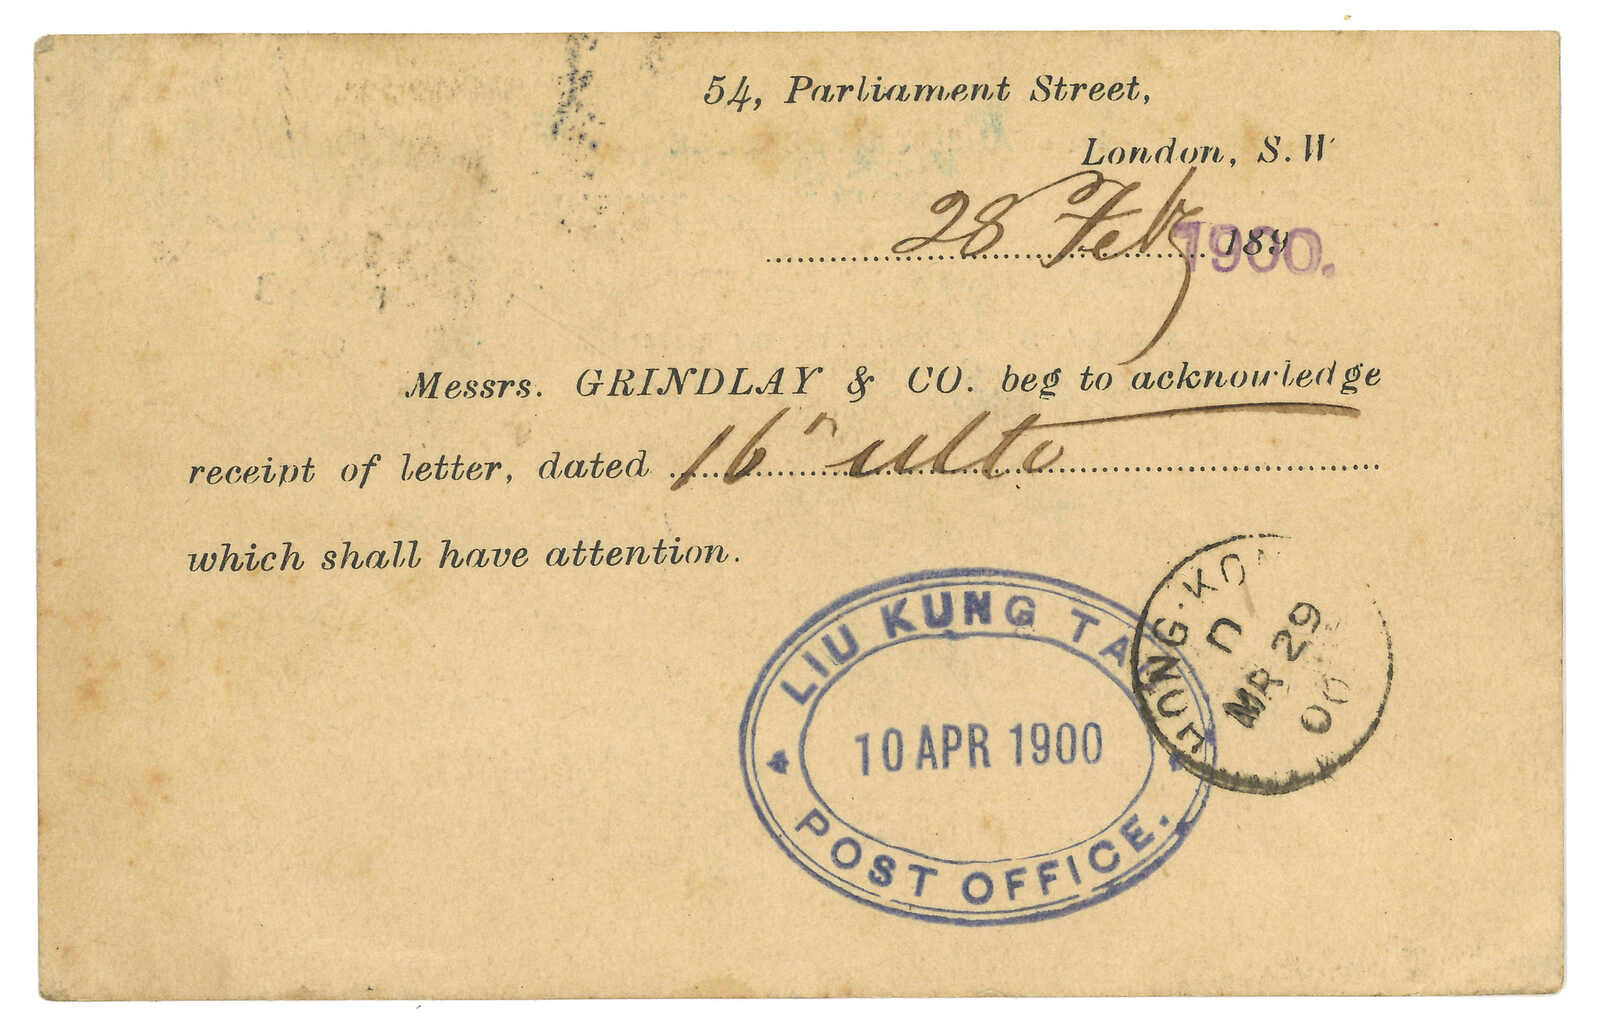 54, Parliament Street,
London, S. W
28 Feby 189
1900.
Messrs. GRINDLAY & CO. beg to acknowledge
receipt of letter, dated 16" ulto
which shall have attention.
LIU KUNG TA
10 APR 1900
POST OFFICE.
HONG·KON
D
MR 29
00